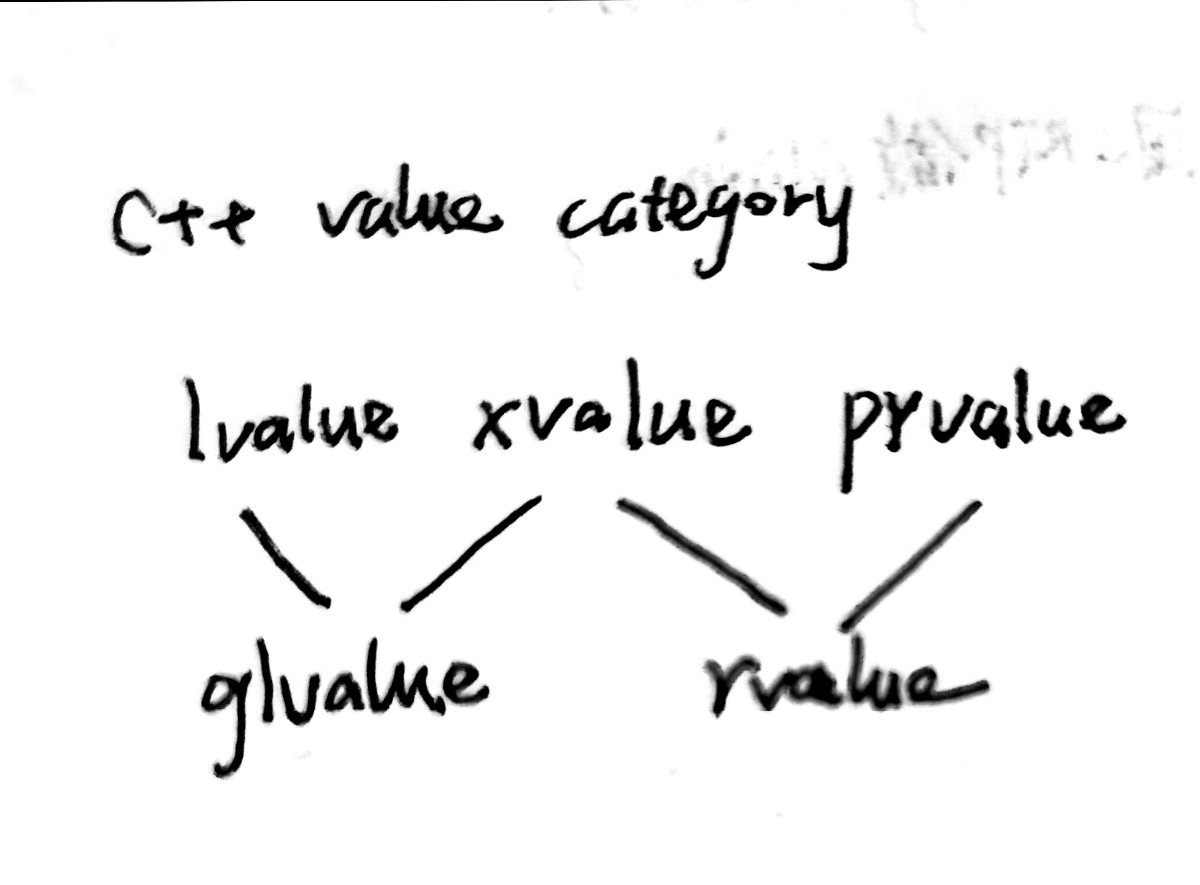 C++ value category
lvalue xvalue prvalue
glvalue rvalue